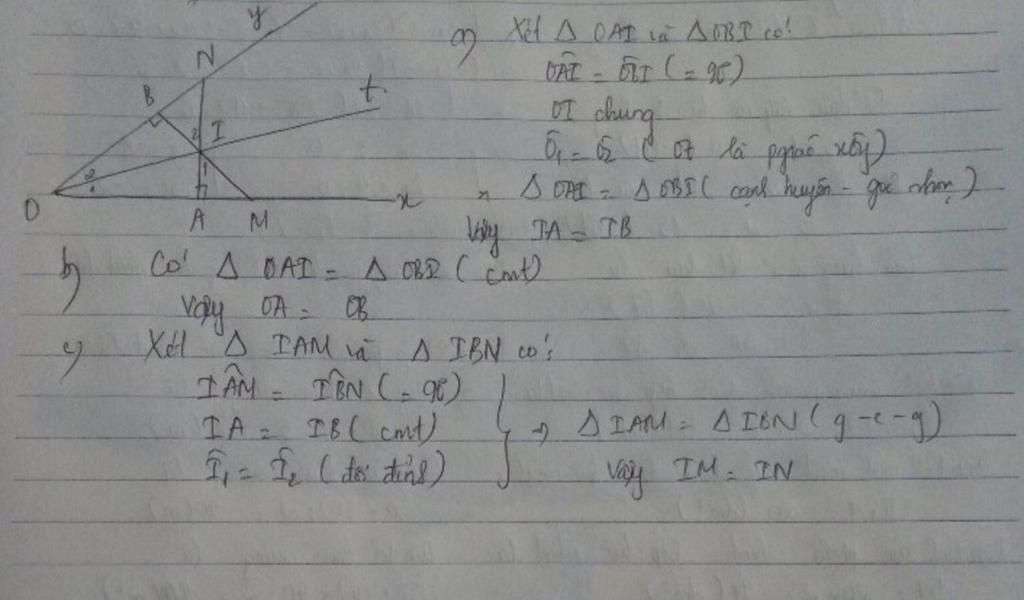 y
N
B
t
2 I
2
1
O
A M x
a) Xét Δ OAI và Δ OBI có:
OÂI = OB̂I (= 90°)
OI chung
Ô1 = Ô2 ( Ot là pgiác xÔy)
⇒ Δ OAI = Δ OBI ( cạnh huyền - góc nhọn )
Vậy IA = IB
b) Có Δ OAI = Δ OBI ( cmt)
Vậy OA = OB
c) Xét Δ IAM và Δ IBN có:
IÂM = IB̂N ( = 90°)
IA = IB ( cmt) ⇒ Δ IAM = Δ IBN ( g - c - g)
Î1 = Î2 ( đối đỉnh) Vậy IM = IN